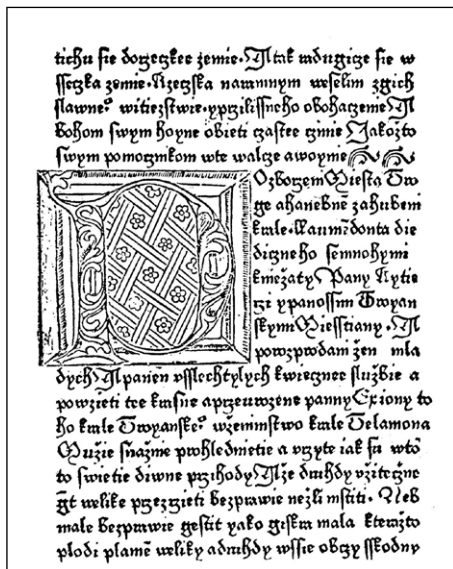 tichu sie dogezkee zemie. A tak wdugize sie w
sseczka zemie. Rzezska nawmnym weselim zgich
slawne witiezstwie. yprzilissneho obohazenie A
bohom swym hoyne obieti czastee czinie Jakożto
swym pomoczmkom wte walcze awoynie
Ozbozem Miesta Tro
ge ahanebne zahubeni
krale. Laumedonta die
dizneho semnohymi
kniezaty Pany Rytie
rzi ypanossim Troyan
skymi Miesstiany. A
powzprodani zen mla
dych A panen vsslechtylych kwiecznee sluzbie a
powzieti tee krasne aprzeurozene panny Exiony to
ho krale Troyanske wzeminstwo krale Telamona
Muzie snazne prohlednietie a vzyte iak su wto
to swietie diwne przihody A ze druhdy vzitezne
gt welike przezrzieti bezprawie nezli mstiti. Neb
male bezprawie gestit yako giskra mala kterażto
plodi plame weliky adruhdy wssie obczy sskodny